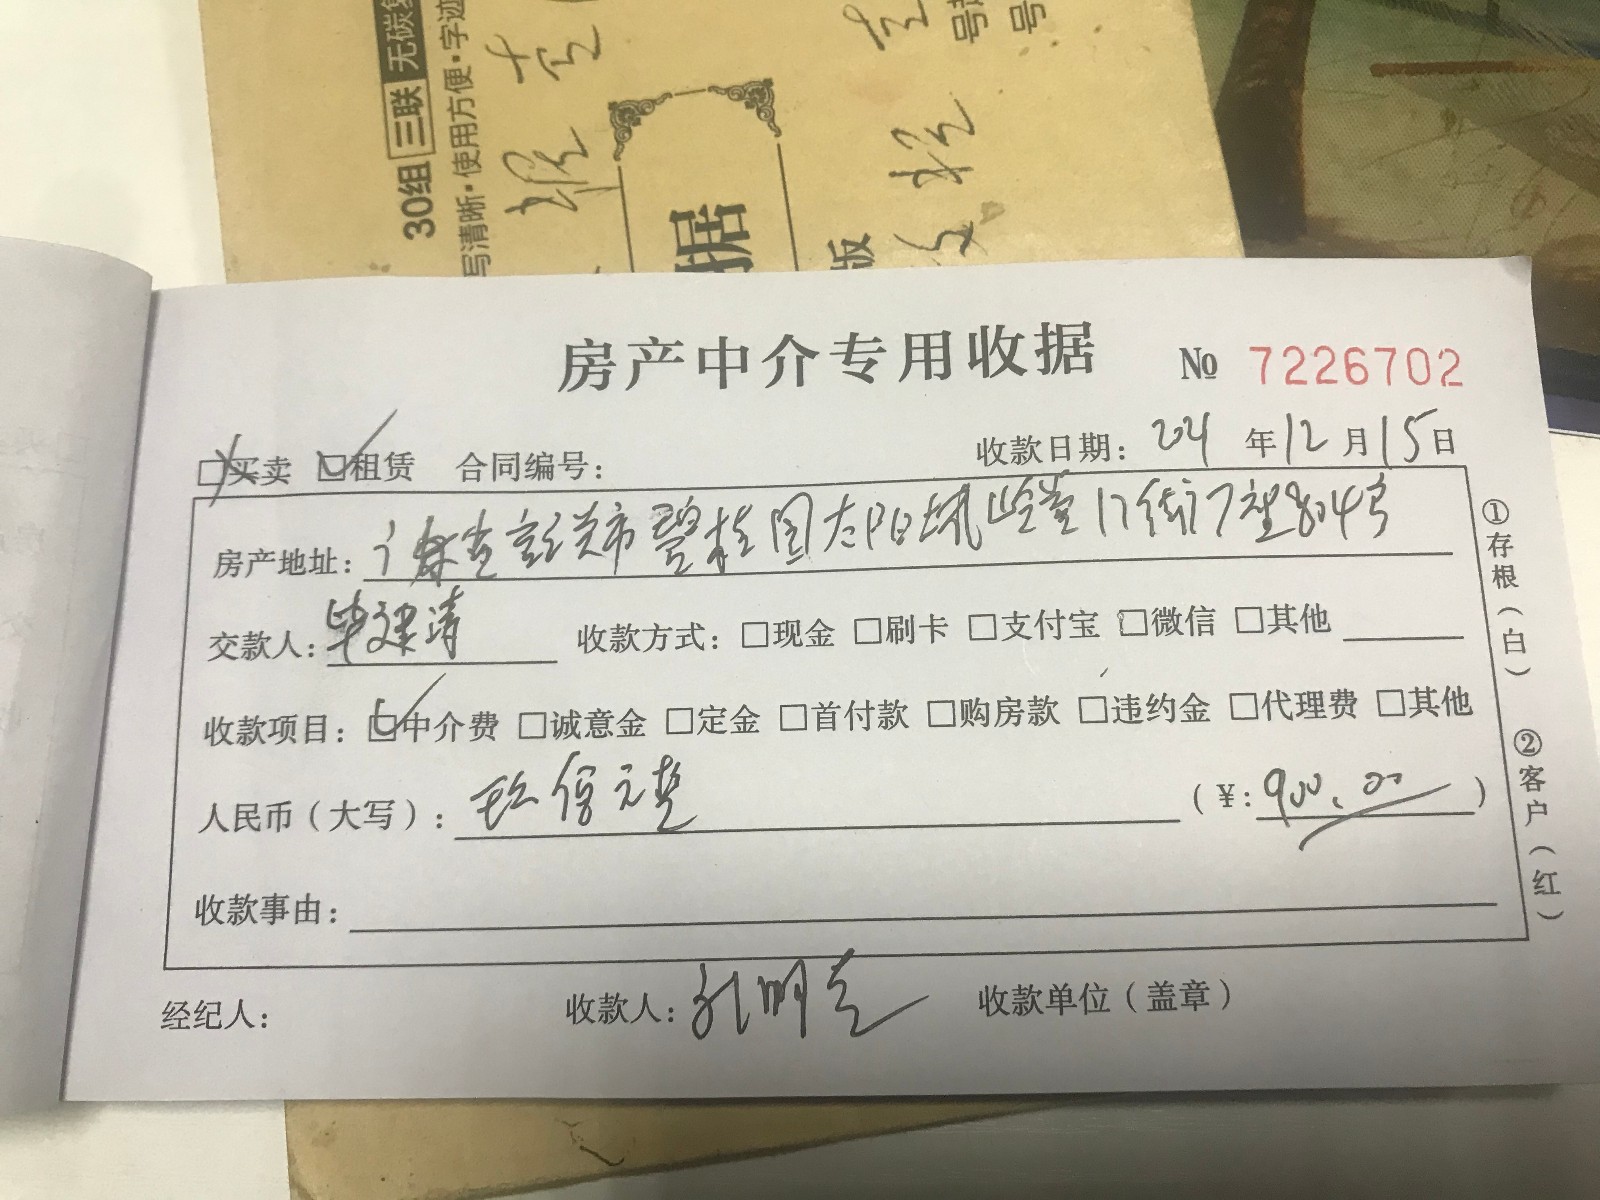 无碳复
30组 三联
写清晰·使用方便·字迹
据
版
房产中介专用收据 № 7226702
□买卖 ☑租赁 合同编号： 收款日期： 2021 年 12 月 15 日
房产地址： 广东省 市碧桂园太阳城 17街17座804号
交款人： 毕建清 收款方式： □现金 □刷卡 □支付宝 □微信 □其他
收款项目： ☑中介费 □诚意金 □定金 □首付款 □购房款 □违约金 □代理费 □其他
人民币（大写）： 玖佰元整 （¥: 900.00 ）
收款事由：
经纪人： 收款人： 孔明 收款单位（盖章）
①存根（白） ②客户（红）